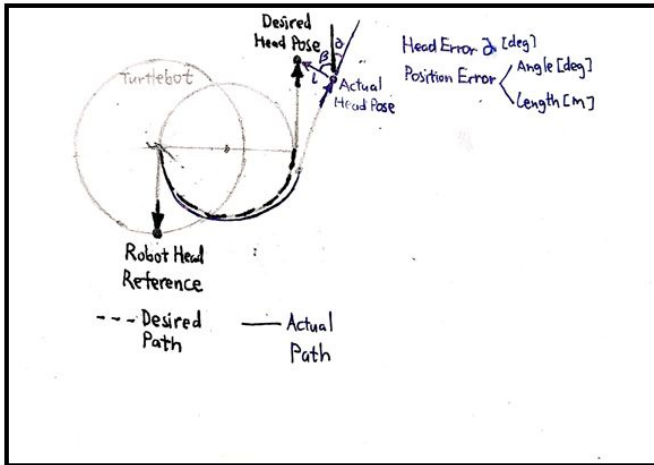 Desired
Head Pose
Turtlebot
β
∂
L
Actual
Head Pose
Head Error ∂ [deg]
Position Error
Angle [deg]
Length [m]
Robot Head
Reference
--- Desired
Path
— Actual
Path